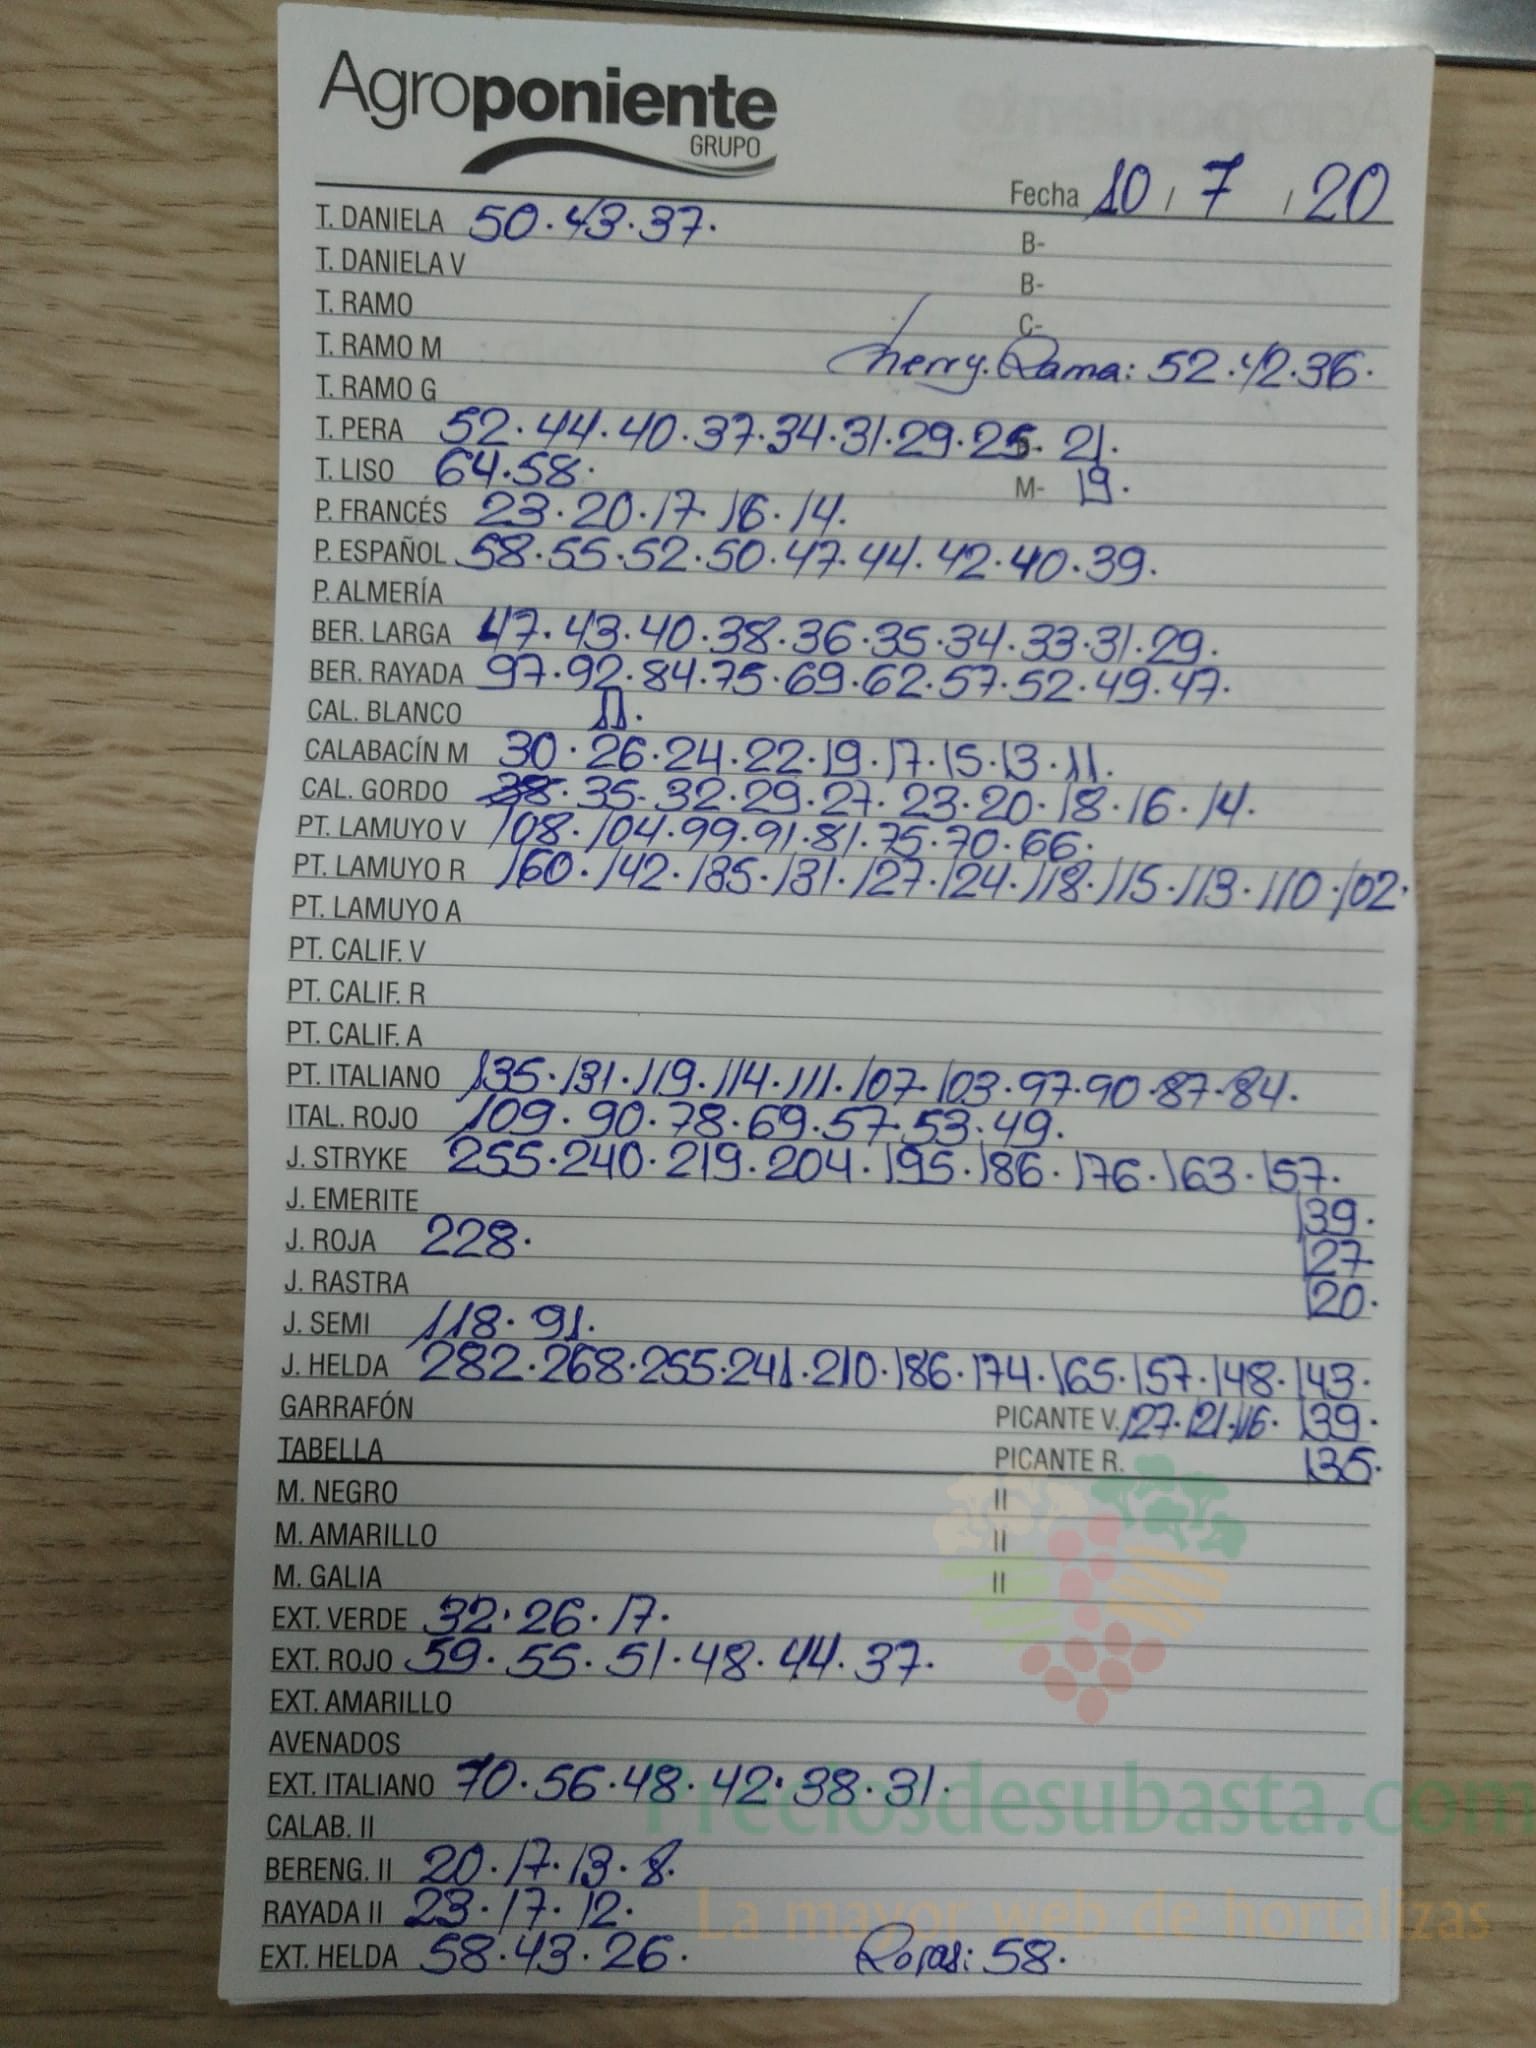 Agroponiente
GRUPO
Fecha 10 / 7 / 20
T. DANIELA 50.43.37. B-
T. DANIELA V B-
T. RAMO C-
T. RAMO M Cherry. Rama: 52.42.36.
T. RAMO G
T. PERA 52.44.40.37.34.31.29.25. 21.
T. LISO 64.58. M- 19.
P. FRANCÉS 23.20.17.16.14.
P. ESPAÑOL 58.55.52.50.47.44.42.40.39.
P. ALMERÍA
BER. LARGA 47.43.40.38.36.35.34.33.31.29.
BER. RAYADA 97.92.84.75.69.62.57.52.49.47.
CAL. BLANCO 11.
CALABACÍN M 30.26.24.22.19.17.15.13.11.
CAL. GORDO 38.35.32.29.27.23.20.18.16.14.
PT. LAMUYO V 108.104.99.91.81.75.70.66.
PT. LAMUYO R 160.142.135.131.127.124.118.115.113.110.102.
PT. LAMUYO A
PT. CALIF. V
PT. CALIF. R
PT. CALIF. A
PT. ITALIANO 135.131.119.114.111.107.103.97.90.87.84.
ITAL. ROJO 109.90.78.69.57.53.49.
J. STRYKE 255.240.219.204.195.186.176.163.157.
J. EMERITE 139.
J. ROJA 228. 127
J. RASTRA 120.
J. SEMI 118.91.
J. HELDA 282.268.255.241.210.186.174.165.157.148.143.
GARRAFÓN PICANTE V. 127.121.116. 139.
TABELLA PICANTE R. 135.
M. NEGRO II
M. AMARILLO II
M. GALIA II
EXT. VERDE 32.26.17.
EXT. ROJO 59.55.51.48.44.37.
EXT. AMARILLO
AVENADOS
EXT. ITALIANO 70.56.48.42.38.31.
Preciosdesubasta.com
CALAB. II
BERENG. II 20.17.13.8.
RAYADA II 23.17.12.
La mayor web de hortalizas
EXT. HELDA 58.43.26. Rojas: 58.